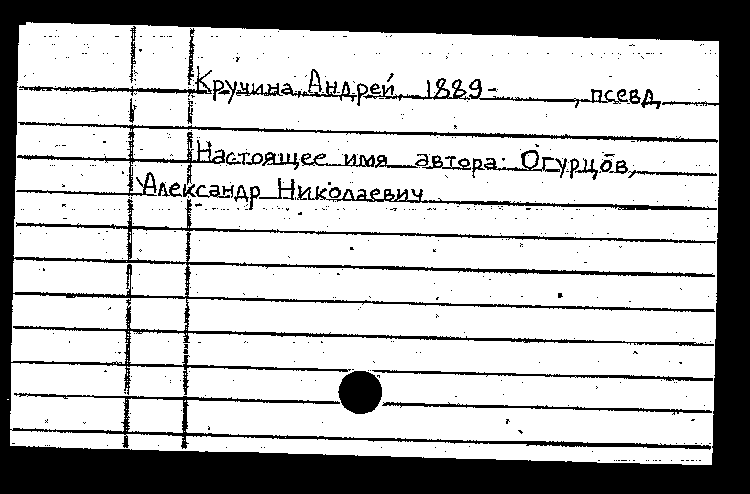 Кручина, Андрей, 1889-      , псевд.
Настоящее имя автора: Огурцов,
Александр Николаевич